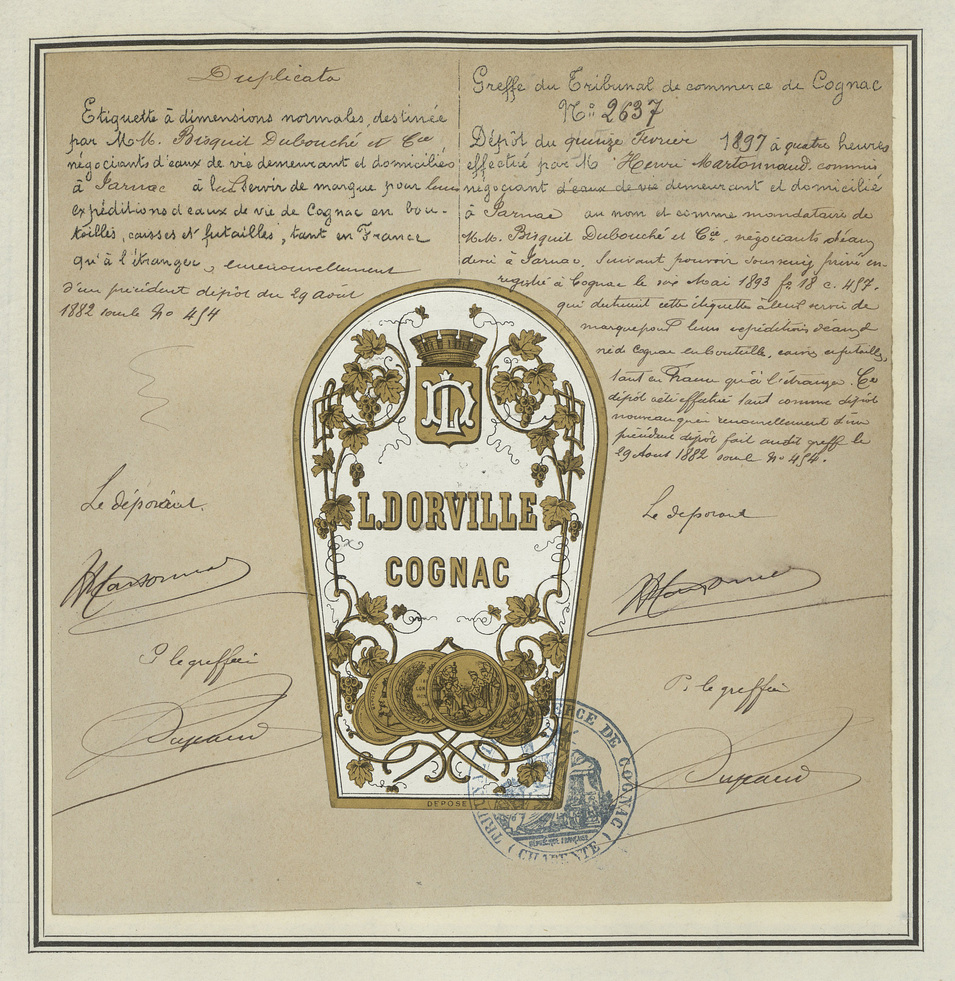 Duplicata
Etiquette à dimensions normales, destinée
par M.M. Bisquit Dubouché et Cie
négociants d'eaux de vie demeurant et domiciliés
à Jarnac à leur servir de marque pour leurs
expéditions d'eaux de vie de Cognac en bou-
teilles, caisses et futailles, tant en France
qu'à l'étranger, en renouvellement
d'un précédent dépôt du 29 août
1882 sous le No 454
Le déposant.
P. le greffier
Greffe du Tribunal de commerce de Cognac
No 2637
Dépôt du quinze Février 1897 à quatre heures
effectué par M Henri Martonnaud, commis
négociant d'eaux de vie demeurant et domicilié
à Jarnac au nom et comme mandataire de
M.M. Bisquit Dubouché et Cie, négociants d'eau
de vie à Jarnac, suivant pouvoir sousseing privé en-
registré à Cognac le six Mai 1893 fo 18 c. 457.
qui destinent cette étiquette à leur servir de
marque pour leurs expéditions d'eau de
vie de Cognac en bouteilles, caisses et futailles,
tant en France qu'à l'étranger. Ce
dépôt a été effectué tant comme dépôt
nouveau qu'en renouvellement d'un
précédent dépôt fait audit greffe le
29 Août 1882 sous le No 454.
Le déposant
P. le greffier
LD
L. DORVILLE
COGNAC
DÉPOSÉ
TRIBUNAL DE COMMERCE DE COGNAC
(CHARENTE)
RÉPUBLIQUE FRANÇAISE